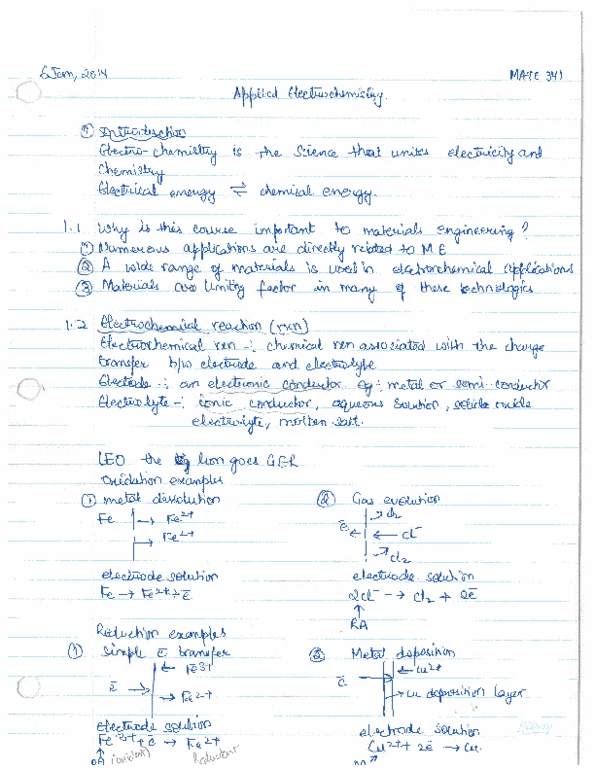 6 Jan, 2014
MATE 341
Applied Electrochemistry.
① Introduction
Electro-chemistry is the Science that unites electricity and
Chemistry
Electrical energy ⇌ chemical energy.
1.1 Why is this course important to materials engineering?
① Numerous applications are directly related to ME
② A wide range of materials is used in electrochemical applications
③ Materials are limiting factor in many of these technologies
1.2 Electrochemical reaction (rxn)
Electrochemical rxn -: chemical rxn associated with the charge
transfer b/w electrode and electrolyte
Electode -: an electronic conductor eg: metal or semi-conductor
Electrolyte -: ionic conductor, aqueous solution, solid oxide
electrolyte, molten salt.
LEO the lion goes GER
Oxidation examples
① metal dissolution
Fe → Fe2+
→ Fe2+
electrode solution
Fe → Fe2+ + ē
② Gas evolution
Cl2
ē ← ← Cl-
Cl2
electrode solution
2Cl- → Cl2 + 2ē
↑
RA
Reduction examples
① Simple ē transfer
← Fe3+
ē →
→ Fe2+
electrode solution
Fe3+ + ē → Fe2+
OA
reductant
② Metal deposition
← Cu2+
ē →
Cu deposition layer
electrode solution
Cu2+ + 2ē → Cu.